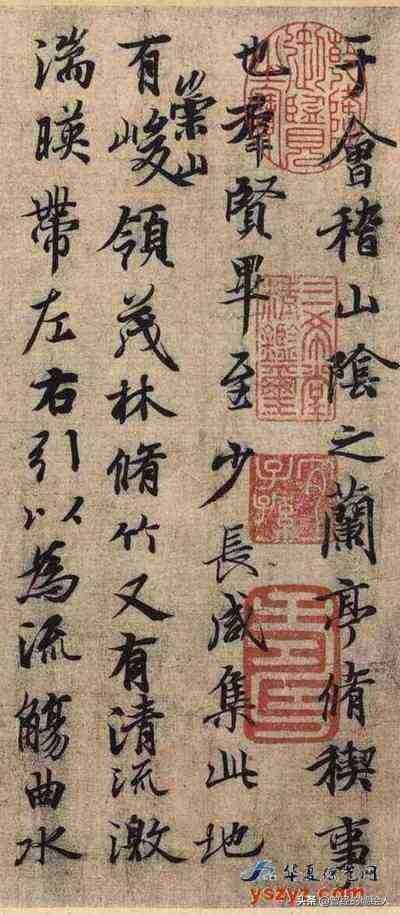 于會稽山陰之蘭亭脩稧事
也羣賢畢至少長咸集此地
有崇山峻領茂林脩竹又有清流激
湍暎帶左右引以為流觴曲水
三希堂精鑑璽
宜子孫
华夏
头条